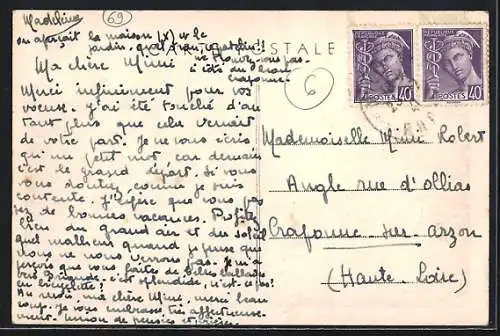 Madeline
69
on aperçoit la maison (x) et le
jardin
CARTE POSTALE
ne trouvez-vous pas
Ma chère Mimi
6
Merci infiniment pour vos
voeux. J'ai été touché d'au
tant plus que cela venait
de votre part. Je ne vous écris
qu'un petit mot, car demain
c'est le grand départ. Si vous
vous doutiez comme je suis
contente. J'espère que vous pas
sez de bonnes vacances. Profitez
bien du grand air et du soleil
quel malheur quand je pense que
nous ne nous verrons pas. Je m'a
perçois que vous faites de belles ballades
en bicyclette; c'est splendide, n'est-ce pas!
Au revoir, ma chère Mimi, merci beau
coup. Je vous embrasse très affectueuse
ment. Union de pensées et prières.
RÉPUBLIQUE FRANÇAISE
POSTES 40
RÉPUBLIQUE FRANÇAISE
POSTES 40
Mademoiselle Mimi Robert
Angle rue d'Ollias
Craponne-sur-Arzon
(Haute Loire)